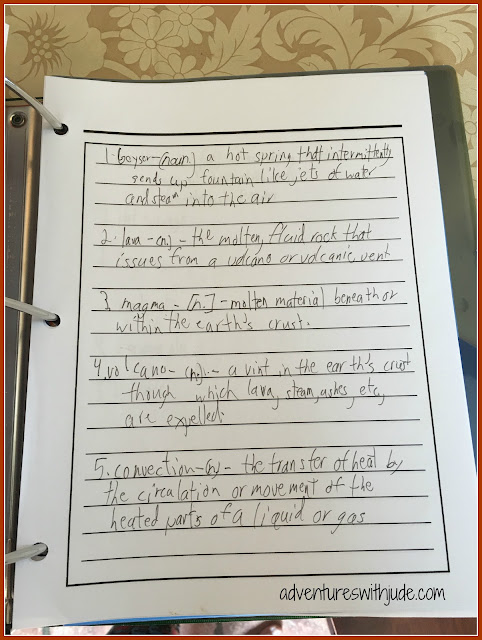 1. Geyser-(noun) a hot spring that intermittently
sends up fountain like jets of water
and steam into the air
2. lava-(n.)-the molten, fluid rock that
issues from a volcano or volcanic, vent
3. magma-[n.]-molten material beneath or
within the earth's crust.
4. volcano-(n.)-a vint in the earth's crust
though which lava, steam, ashes, etc,
are expelled.
5. convection-(n)-the transfer of heat by
the circulation or movement of the
heated parts of a liquid or gas
adventureswithjude.com